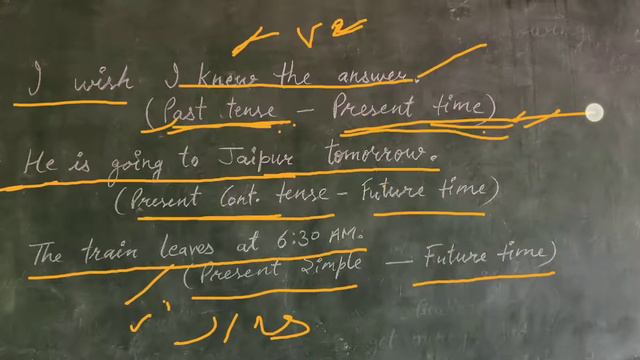 V2
I wish I knew the answer.
(Past tense - Present time)
He is going to Jaipur tomorrow.
(Present Cont. tense - Future time)
The train leaves at 6:30 AM.
(Present Simple - Future time)